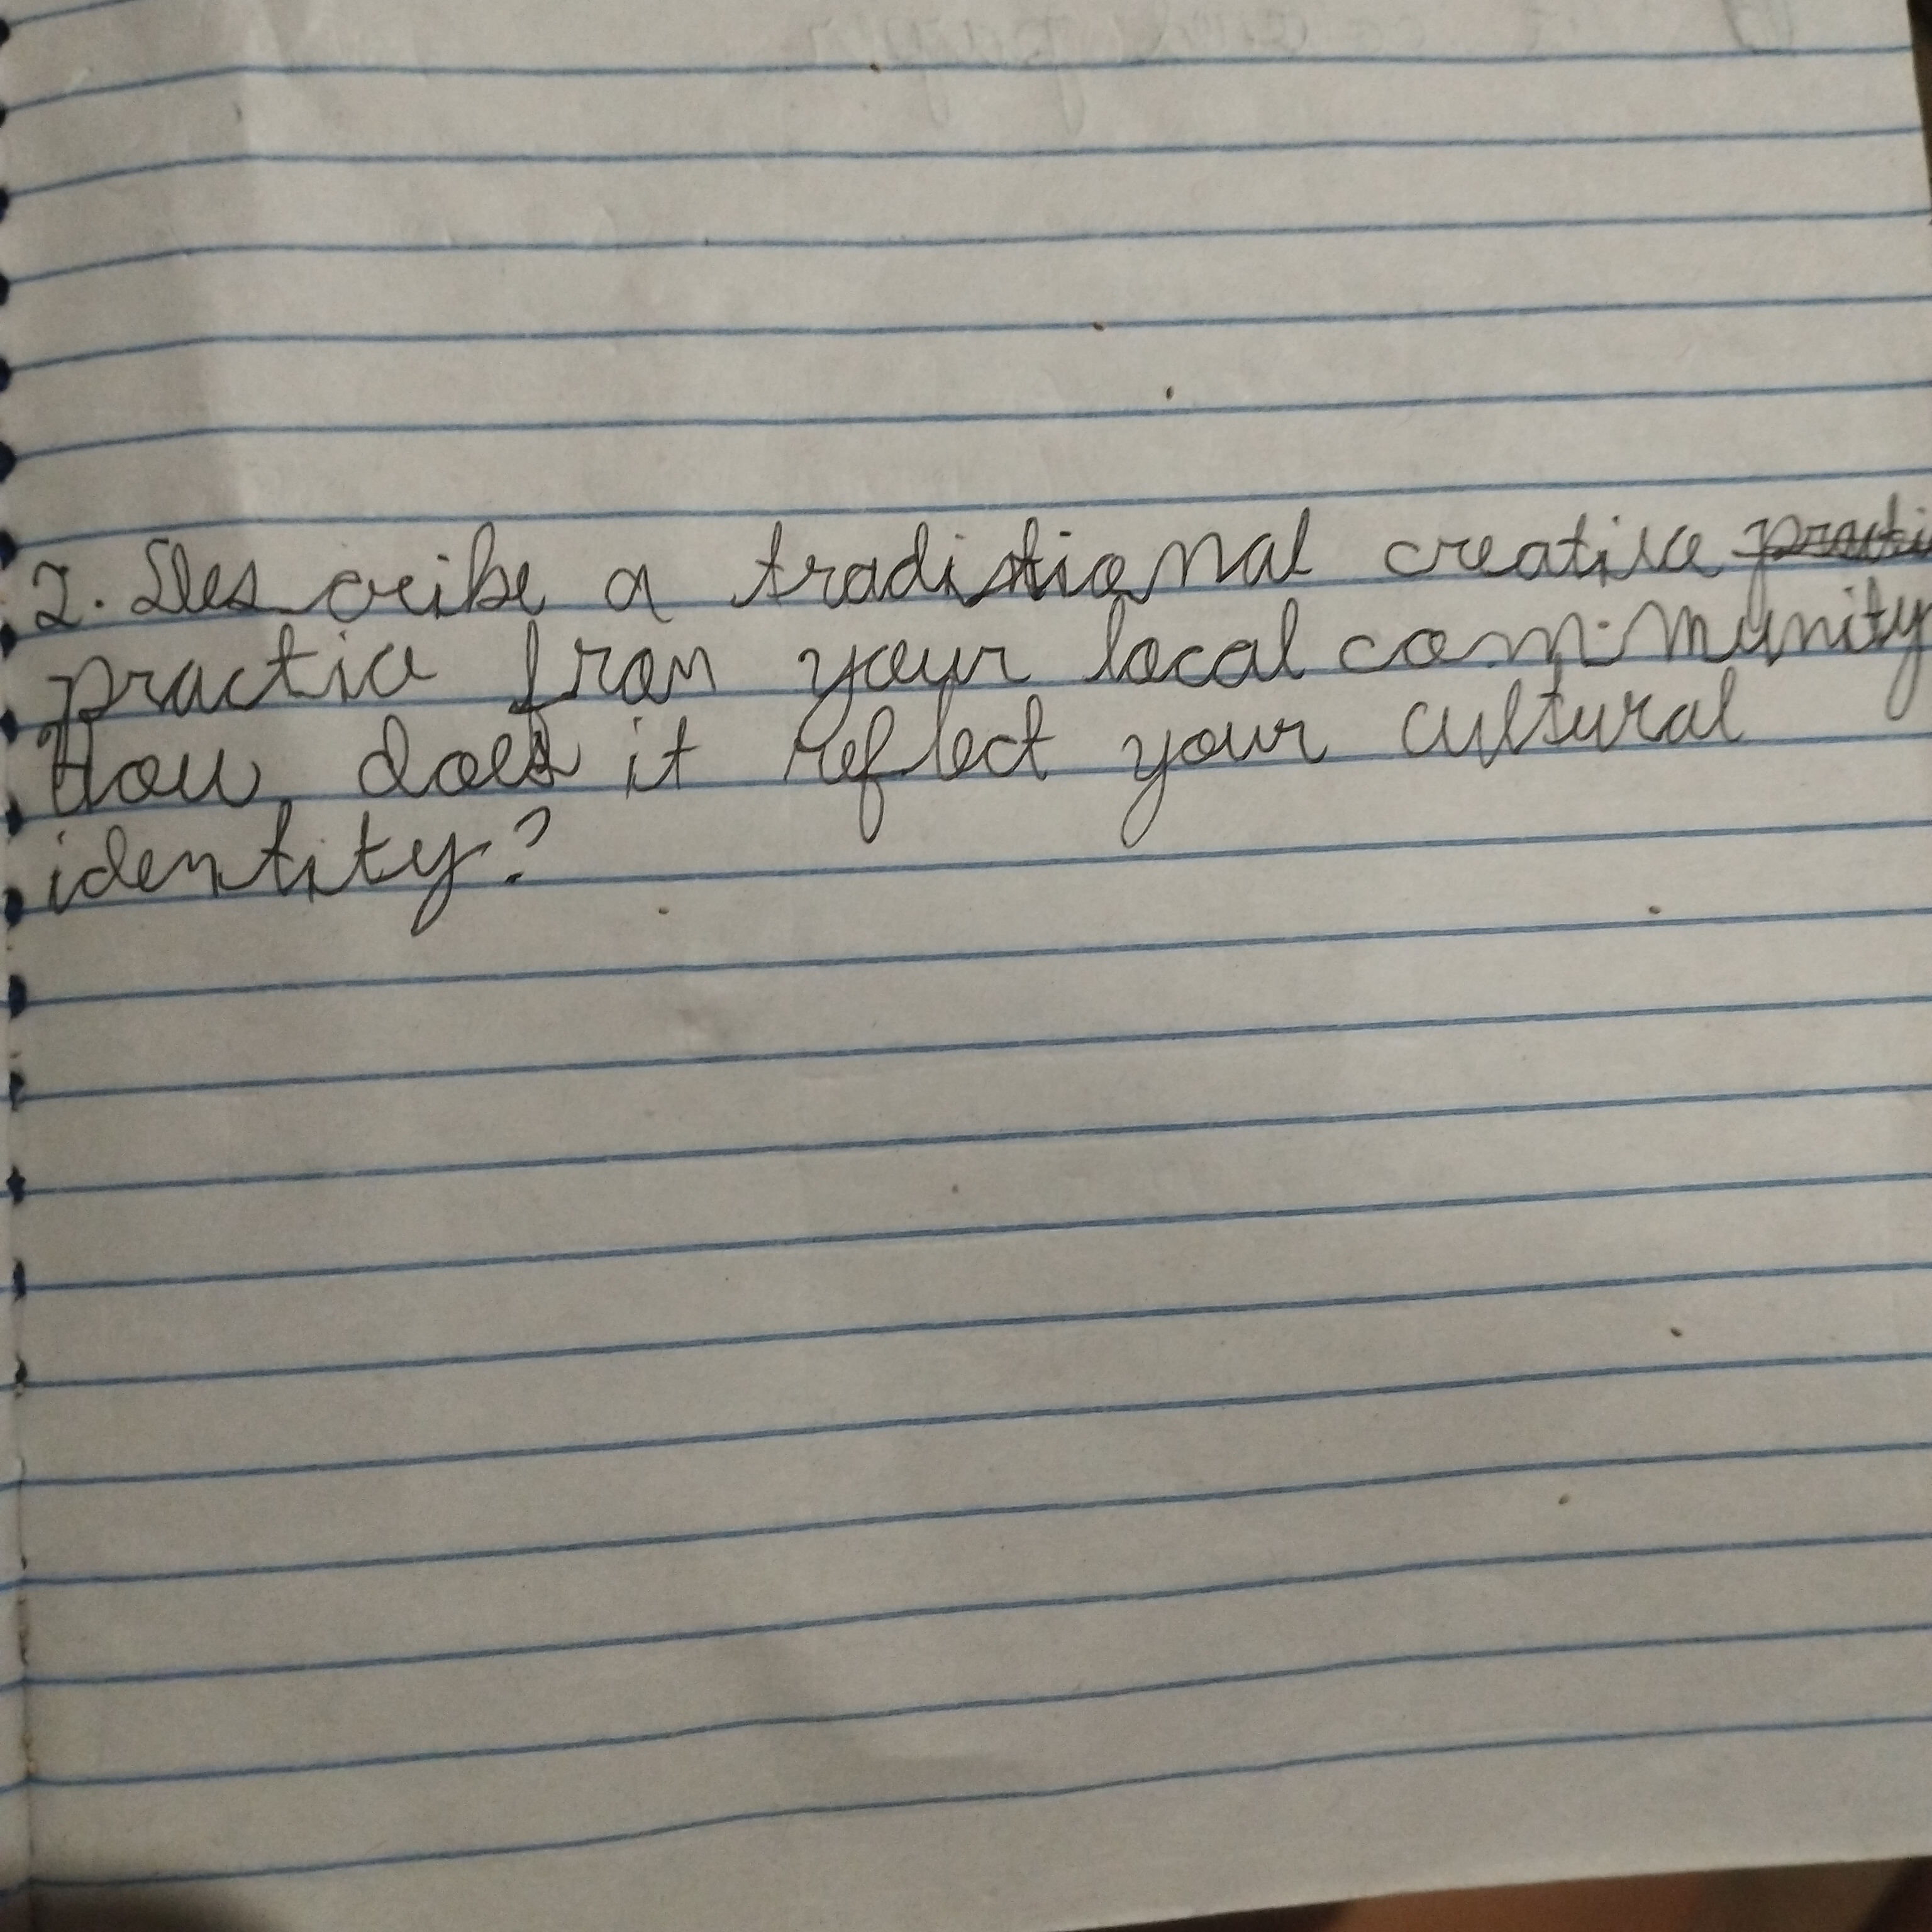 2. Describe a traditional creative practi
practice from your local com-munity
How does it reflect your cultural
identity?